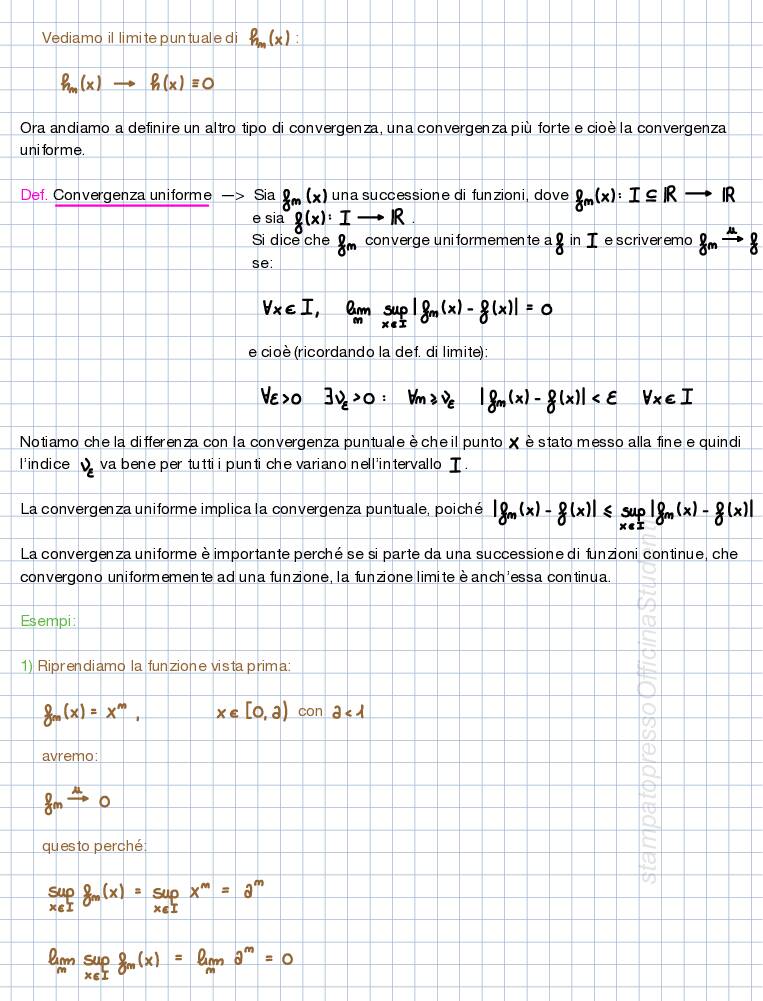 Vediamo il limite puntuale di hₙ(x) :
hₙ(x) → h(x) ≡ 0
Ora andiamo a definire un altro tipo di convergenza, una convergenza più forte e cioè la convergenza
uniforme.
Def. Convergenza uniforme —> Sia fₙ(x) una successione di funzioni, dove fₙ(x): I ⊆ ℝ → ℝ
e sia f(x): I → ℝ .
Si dice che fₙ converge uniformemente a f in I e scriveremo fₙ →ᵘ f
se:
∀x ∈ I, lim_n sup_{x∈I} |fₙ(x) - f(x)| = 0
e cioè (ricordando la def. di limite):
∀ε>0 ∃ν_ε>0 : ∀n≥ν_ε |fₙ(x) - f(x)| < ε ∀x ∈ I
Notiamo che la differenza con la convergenza puntuale è che il punto x è stato messo alla fine e quindi
l'indice ν_ε va bene per tutti i punti che variano nell'intervallo I .
La convergenza uniforme implica la convergenza puntuale, poiché |fₙ(x) - f(x)| ≤ sup_{x∈I} |fₙ(x) - f(x)|
La convergenza uniforme è importante perché se si parte da una successione di funzioni continue, che
convergono uniformemente ad una funzione, la funzione limite è anch'essa continua.
Esempi:
1) Riprendiamo la funzione vista prima:
fₙ(x) = xⁿ , x ∈ [0, a) con a < 1
avremo:
fₙ →ᵘ 0
questo perché:
sup_{x∈I} fₙ(x) = sup_{x∈I} xⁿ = aⁿ
lim_n sup_{x∈I} fₙ(x) = lim_n aⁿ = 0
stampato presso OfficinaStudenti